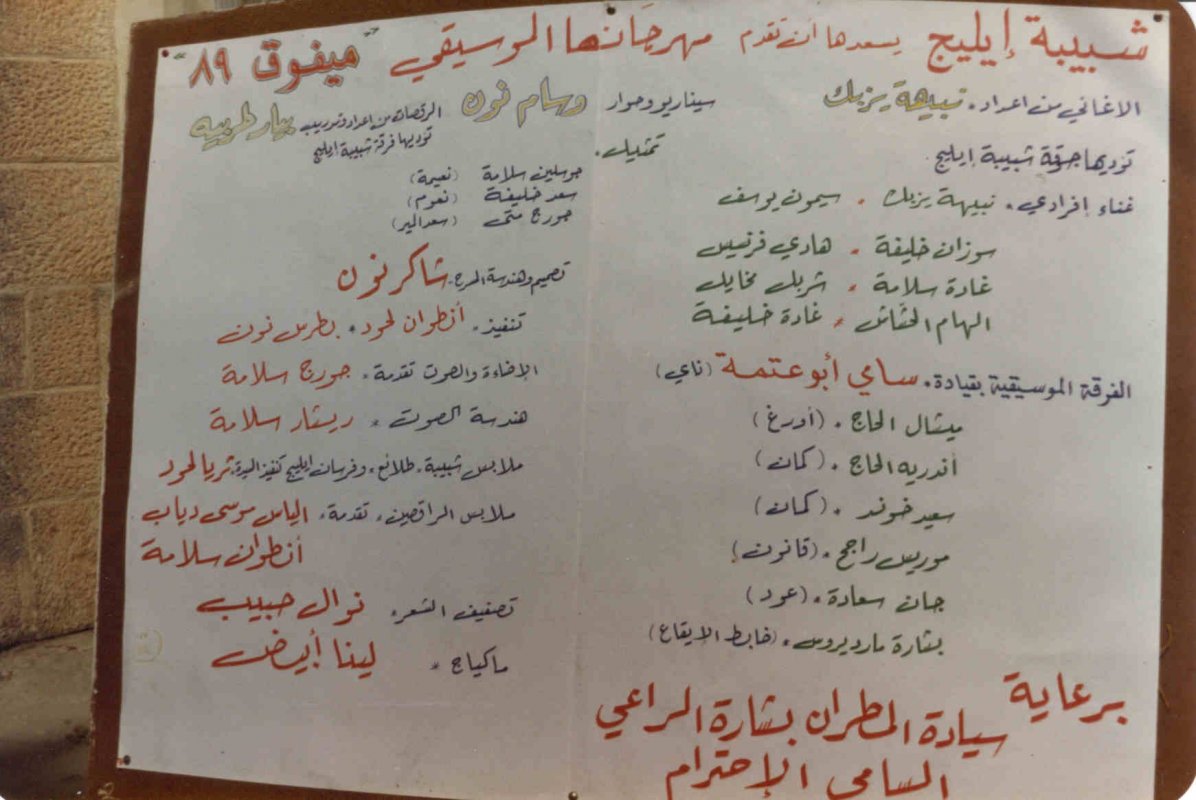 شبيبة إيليج يسعدها أن تقدم مهرجانها الموسيقي "ميفوق ٨٩"
الاغاني من اعداد. نبيهة يزبك
تؤديها جوقة شبيبة إيليج.
غناء إفرادي. نبيهة يزبك . سيمون يوسف
سوزان خليفة . هادي فرنسيس
غادة سلامة . شربل مخايل
الهام الحشاش . غادة خليفة
الفرقة الموسيقية بقيادة. سامي أبو عتمة (ناي)
ميشال الحاج . (أورغ)
أندريه الحاج . (كمان)
سعيد خوند . (كمان)
موريس راجح . (قانون)
جان سعادة . (عود)
بشارة مارديروس . (ضابط الايقاع)
برعاية
سيادة المطران بشارة الراعي
السامي الإحترام
سيناريو وحوار وسام نون
الرقصات من اعداد وتدريب بيار طربيه
تؤديها فرقة شبيبة إيليج
تمثيل.
جوسلين سلامة (نعيمة)
سعد خليفة (نعوم)
جورج متى (سعد المير)
تصميم وهندسة المسرح. شاكر نون
تنفيذ. أنطوان لحود. بطرس نون
الإضاءة والصوت تقدمة. جورج سلامة
هندسة الصوت . ريشار سلامة
ملابس شبيبة. طلائع. وفرسان إيليج تنفيذ السيدة. ثريا لحود
ملابس الراقصين. تقدمة. الياس موسى دياب
أنطوان سلامة
تصفيف الشعر. نوال حبيب
ماكياج . لينا أبيض